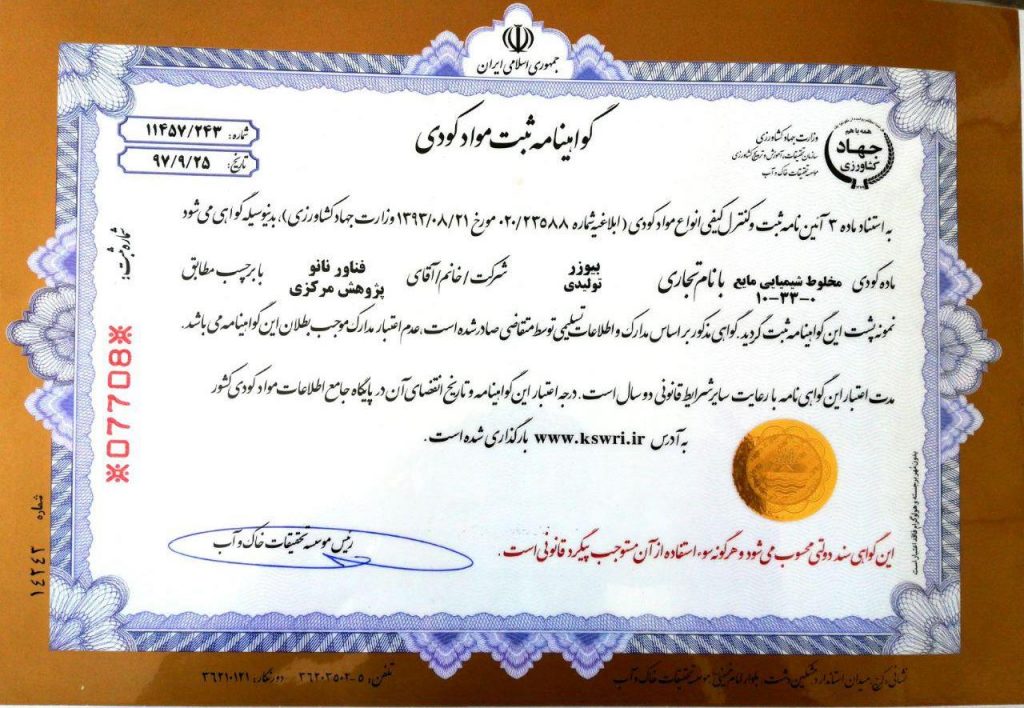 جمهوری اسلامی ایران
همه با هم
جهاد
کشاورزی
وزارت جهاد کشاورزی
سازمان تحقیقات، آموزش و ترویج کشاورزی
موسسه تحقیقات خاک و آب
گواهینامه ثبت مواد کودی
شماره: ۱۱۴۵۷/۲۴۳
تاریخ: ۹۷/۹/۲۵
به استناد ماده ۳ آئین نامه ثبت و کنترل کیفی انواع مواد کودی (ابلاغیه شماره ۰۲۰/۲۳۵۸۸ مورخ ۱۳۹۳/۰۸/۲۱ وزارت جهاد کشاورزی)، بدینوسیله گواهی می شود
ماده کودی مخلوط شیمیایی مایع ۱۰-۳۳-۰ با نام تجاری بیوزر تولیدی شرکت/خانم/آقای فناور نانو پژوهش مرکزی با برچسب مطابق
نمونه پشت این گواهینامه ثبت گردید. گواهی مذکور بر اساس مدارک و اطلاعات تسلیمی توسط متقاضی صادر شده است. عدم اعتبار مدارک موجب بطلان این گواهینامه می باشد.
مدت اعتبار این گواهی نامه با رعایت سایر شرایط قانونی دو سال است. درجه اعتبار این گواهینامه و تاریخ انقضای آن در پایگاه جامع اطلاعات مواد کودی کشور
به آدرس www.kswri.ir بارگذاری شده است.
شماره ثبت:
07708
رئیس موسسه تحقیقات خاک و آب
این گواهی سند دولتی محسوب می شود و هرگونه سوء استفاده از آن مستوجب پیگرد قانونی است.
بدون مهر برجسته و هولوگرام فاقد اعتبار است
شماره ۱۴۲۴۳
نشانی: کرج، میدان استاندارد، مشکین دشت، بلوار امام خمینی، موسسه تحقیقات خاک و آب
تلفن: ۵-۳۶۲۰۳۵۰۲ دورنگار: ۳۶۲۱۰۱۲۱